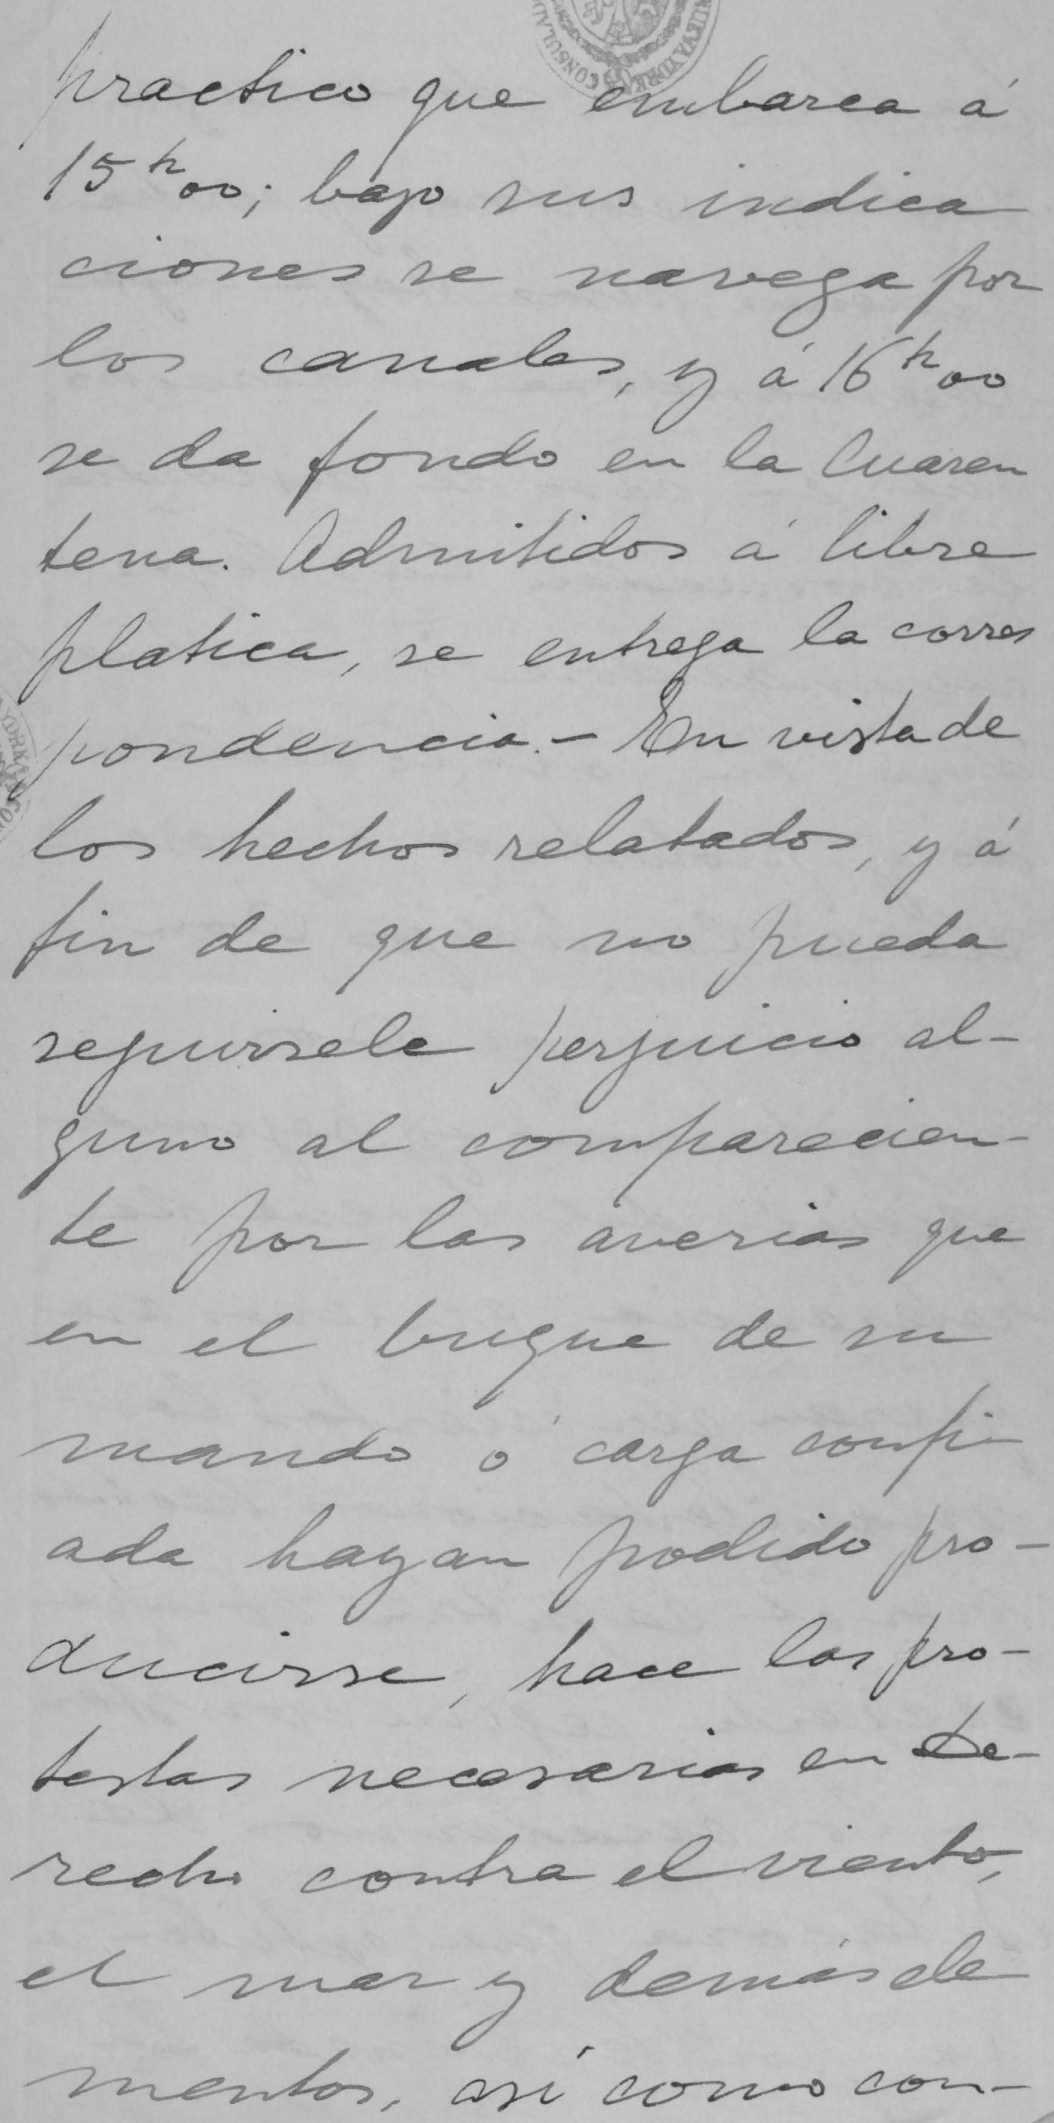 practico que embarca á
15 h 00; bajo sus indica
ciones se navega por
los canales, y á 16 h 00
se da fondo en la Cuaren
tena. Admitidos á libre
platica, se entrega la corres
pondencia.- En vista de
los hechos relatados, y á
fin de que no pueda
seguirsele perjuicio al-
guno al comparecien-
te por las averias que
en el buque de su
mando ó carga confi
ada hayan podido pro-
ducirse, hace las pro-
testas necesarias en De-
recho contra el viento,
el mar y demás ele
mentos, asi como con-